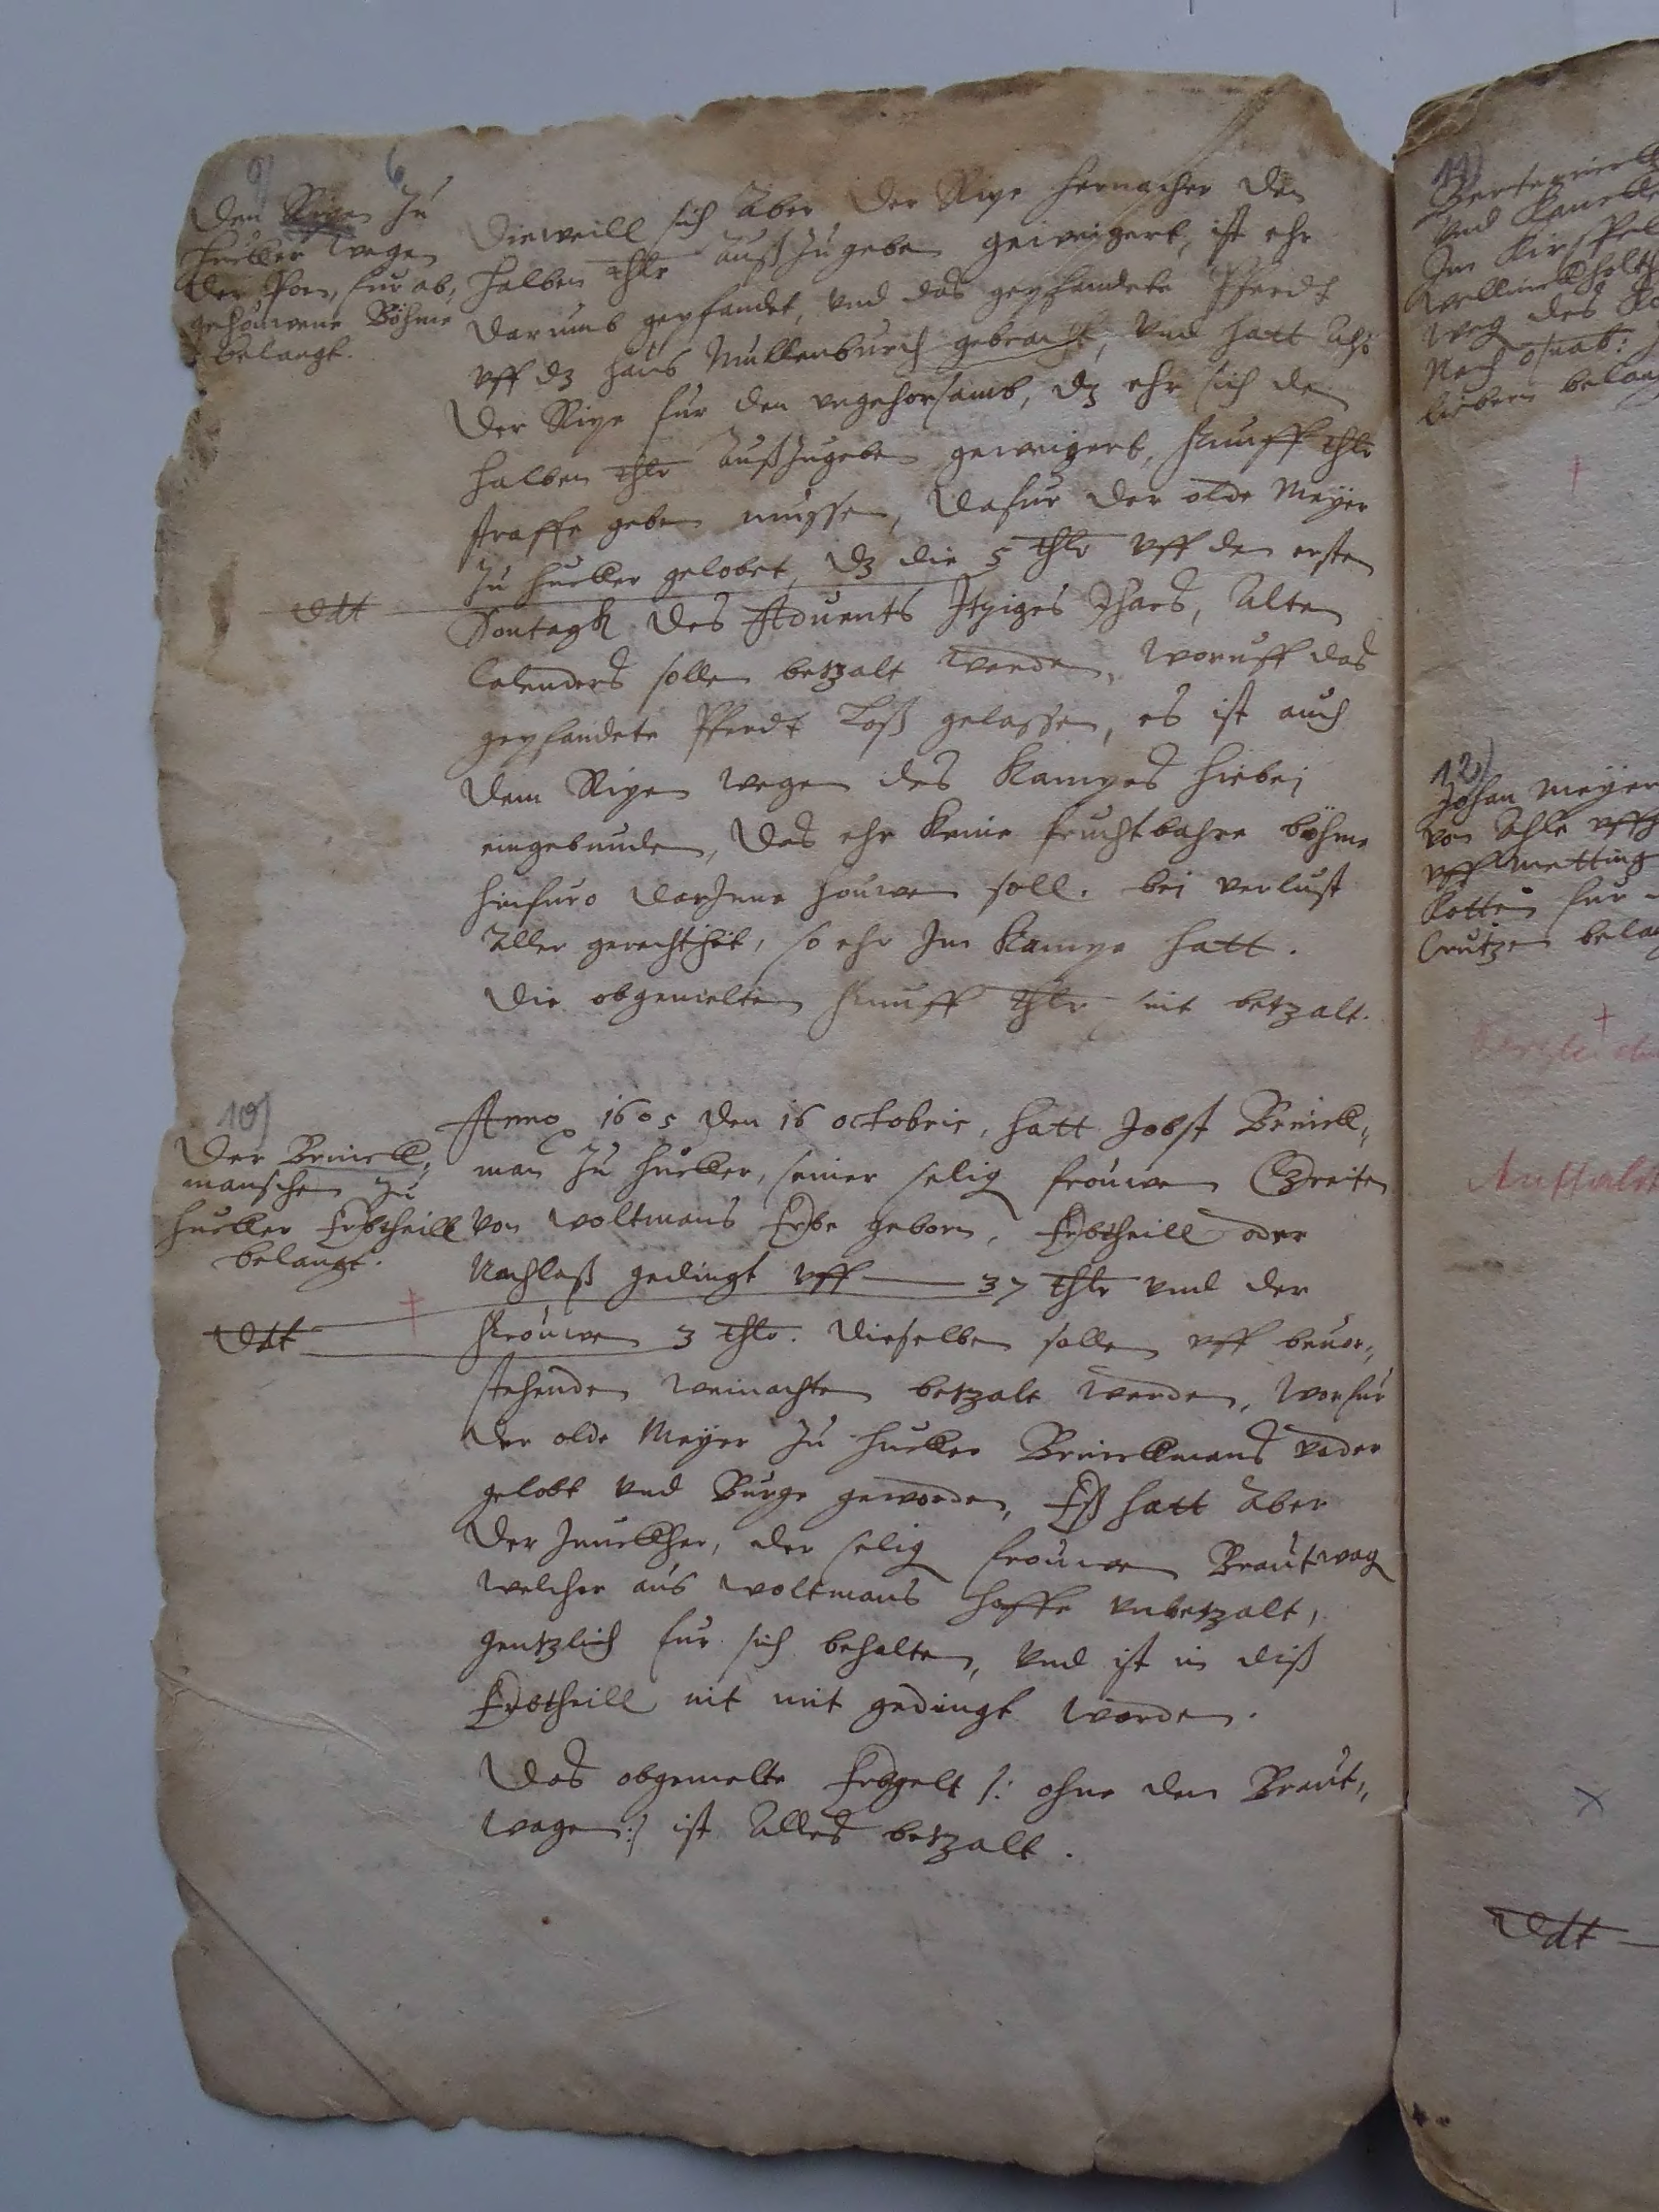 9)
6
Den Ripen Zu
Hucker wegen
der Poen, fur ab,
gehouwene Böhme
belangt.
Dieweill sich Aber der Ripe hernacher den
halben thlr außZugeben geweigert, ist ehr
darumb gepfandet, und das gepfandete Pferdt
uff dz haus Mullenburch gebracht, Und hatt Also
Der Ripe fur den ungehorsamb, dz ehr sich de
halben thlr Außzugeben geweigert, funff thlr
straffe geben mussen, Dafur der olde Meyer
Zu Hucker gelobet, dz die 5 thlr uff den ersten
ddt
Sontagh des Aduents Itziges Jhars, Alten
Calenders sollen betzalt werden, Woruff das
gepfandete Pferdt Loß gelassen, es ist auch
dem Ripen wegen des Kampes hiebei
eingebunden, Das ehr keine fruchtbahre böhme
hinfuro darJnne houwen soll. bei verlust
Aller gerechtheit, so ehr Jm Kampe hatt.
Die obgemelten funff thlr seit betzalt.
10)
Der Brinck,,
manschen zu
Hucker Erbtheill
belangt.
Anno 1605 den 16 octobris, hatt Jobst Brinck,,
man Zu Hucker, seiner selig frouwen
von Woltmans Erbe geborn, Erbtheill oder
Nachlaß gedingt uff 37 thlr und der
ddt
frouwen 3 thlr. Dieselben sollen uff beuor,,
stehenden weinachten betzalt werden, Worfur
der olde Meyer Zu Hucker Brinckmans vader
gelobt und Burge geworden, Eß hatt Aber
der Junckher, der selig frouwen Brautwag
welcher aus Woltmans hoffe unbetzalt,
gentzlich fur sich behalten, Und ist in diß
Erbtheill nit mit gedingt worden.
Das obgemelte Erbgelt /: ohne den Braut,,
wagen :/ ist Alles betzalt.
11)
Und
Jm Kirspel
weg des
Nach Osnab:
belang
12)
Johan Meyer
von Ahle uff
uff Metting
Kotten fur
belang
ddt